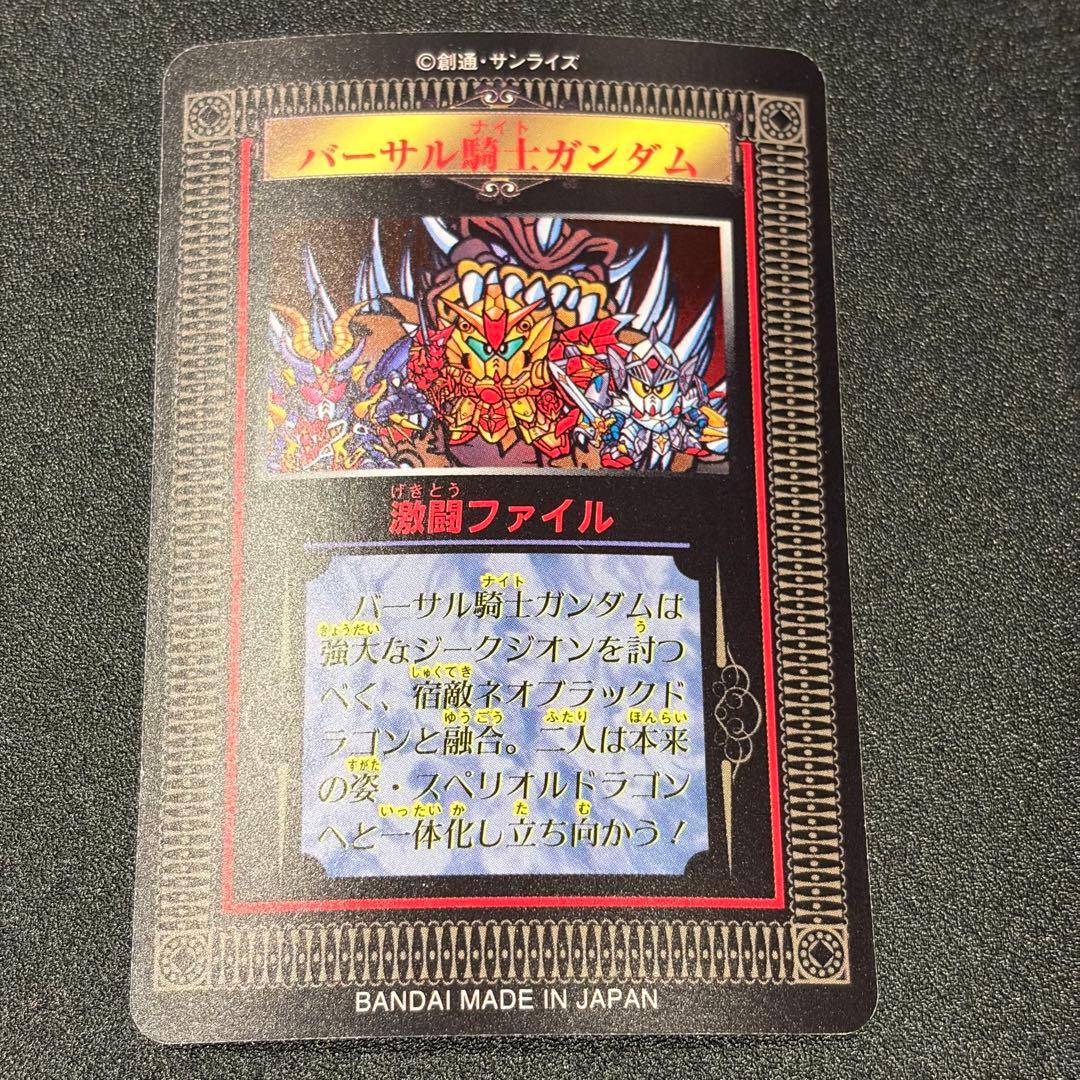 ©創通・サンライズ
ナイト
バーサル騎士ガンダム
げきとう
激闘ファイル
ナイト
バーサル騎士ガンダムは
きょうだい う
強大なジークジオンを討つ
しゅくてき
べく、宿敵ネオブラックド
ゆうごう ふたり ほんらい
ラゴンと融合。二人は本来
すがた
の姿・スペリオルドラゴン
いったい か た む
へと一体化し立ち向かう！
BANDAI MADE IN JAPAN